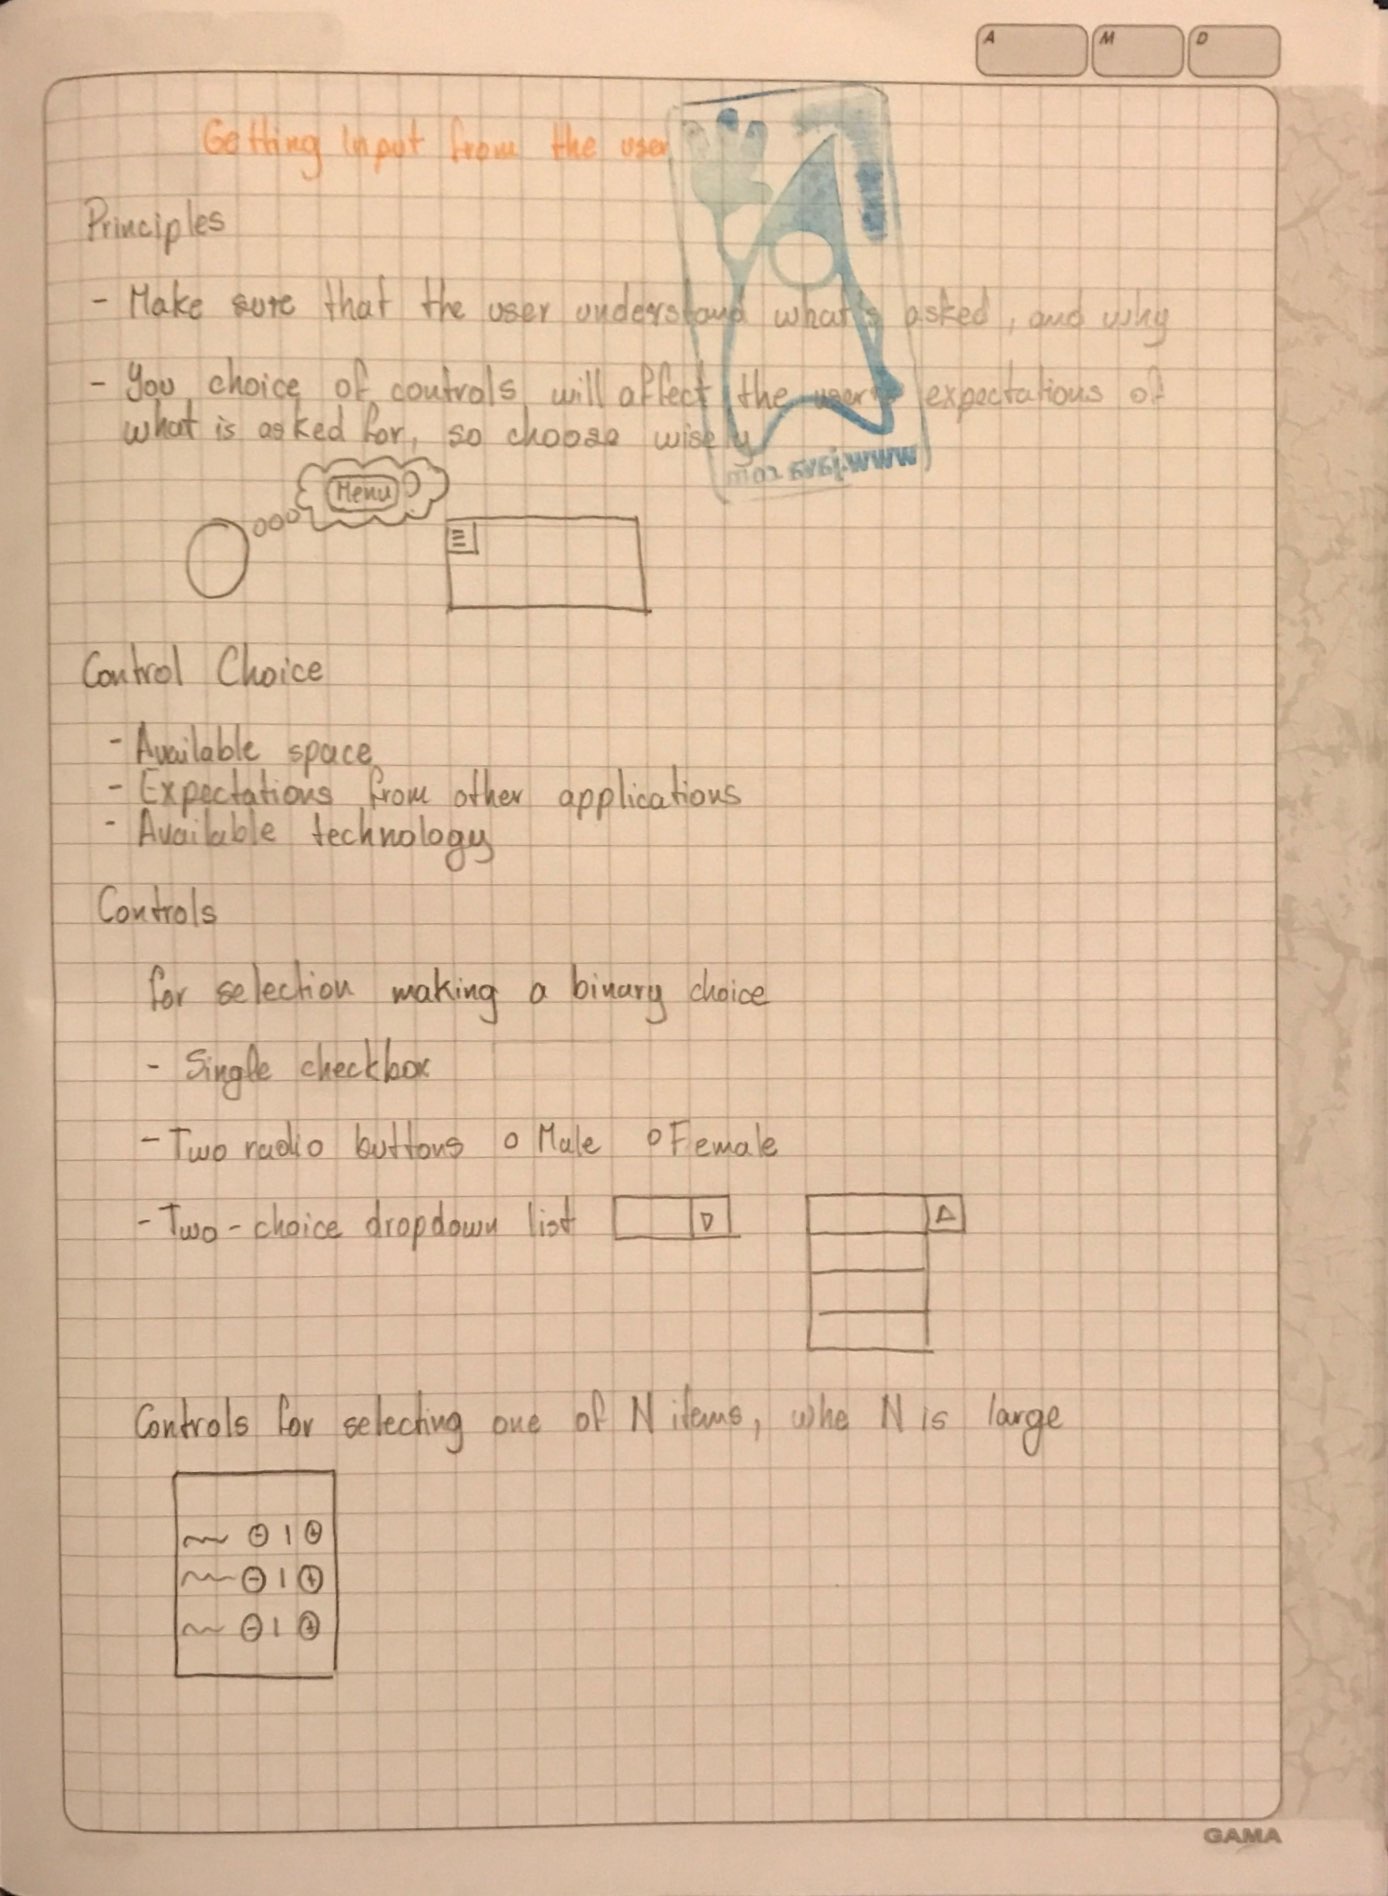 A M D
Getting Input from the user
Principles
- Make sure that the user understand what's asked, and why
- You choice of controls will affect the user's expectations of
what is asked for, so choose wisely
www.java.com
Menu
Control Choice
- Available space
- Expectations from other applications
- Available technology
Controls
for selection making a binary choice
- Single checkbox
- Two radio buttons o Male o Female
- Two-choice dropdown list
Controls for selecting one of N items, whe N is large
- 1 +
- 1 +
- 1 +
GAMA